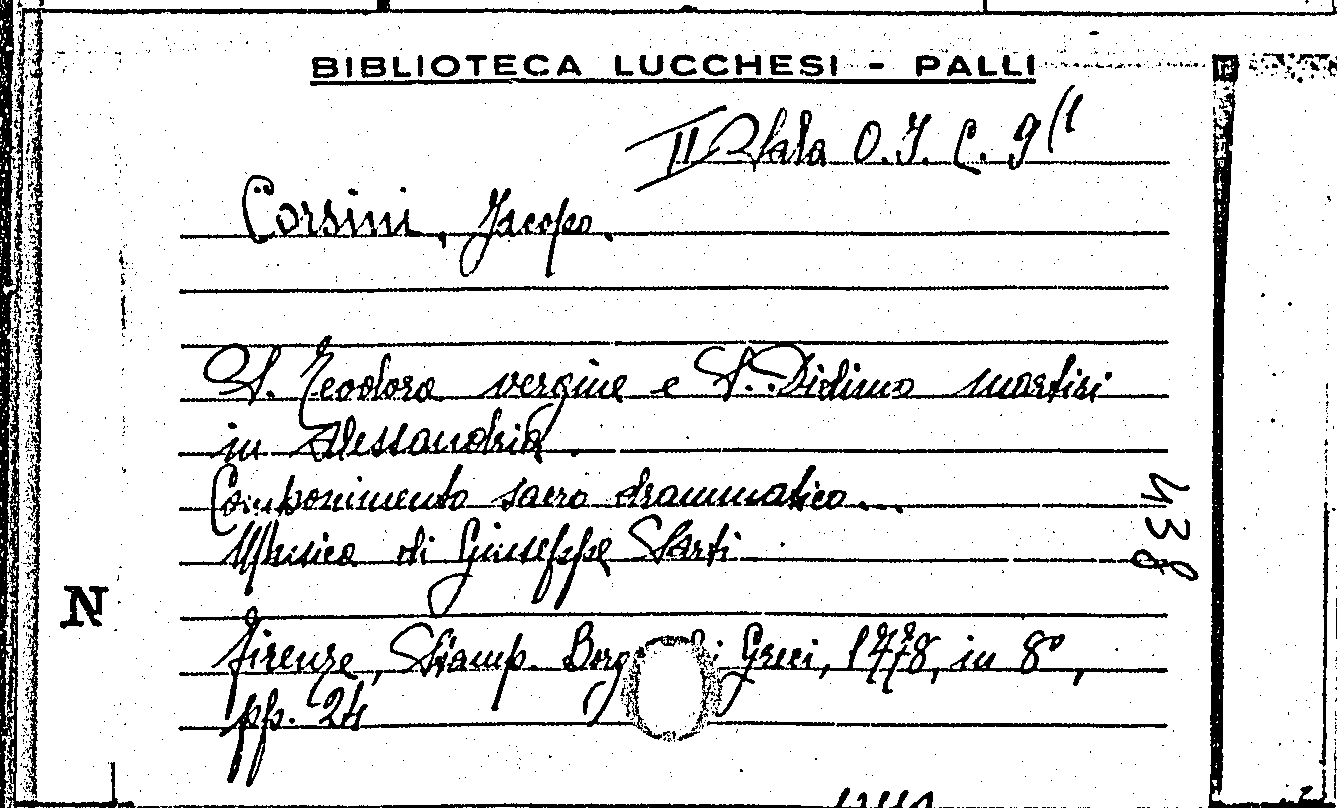 BIBLIOTECA LUCCHESI - PALLI
II Sala O. I. C. 9
Corsini, Jacopo.
S. Teodora vergine e S. Didimo martiri
in Alessandria.
Componimento sacro drammatico...
Musica di Giuseppe Sarti
438
N
Firenze, Stamp. Greci, 1778, in 8°,
pp. 24